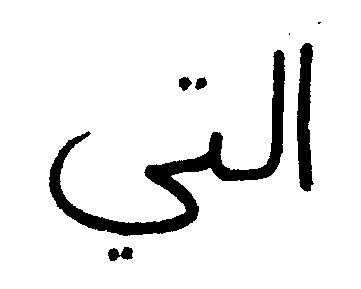 التي